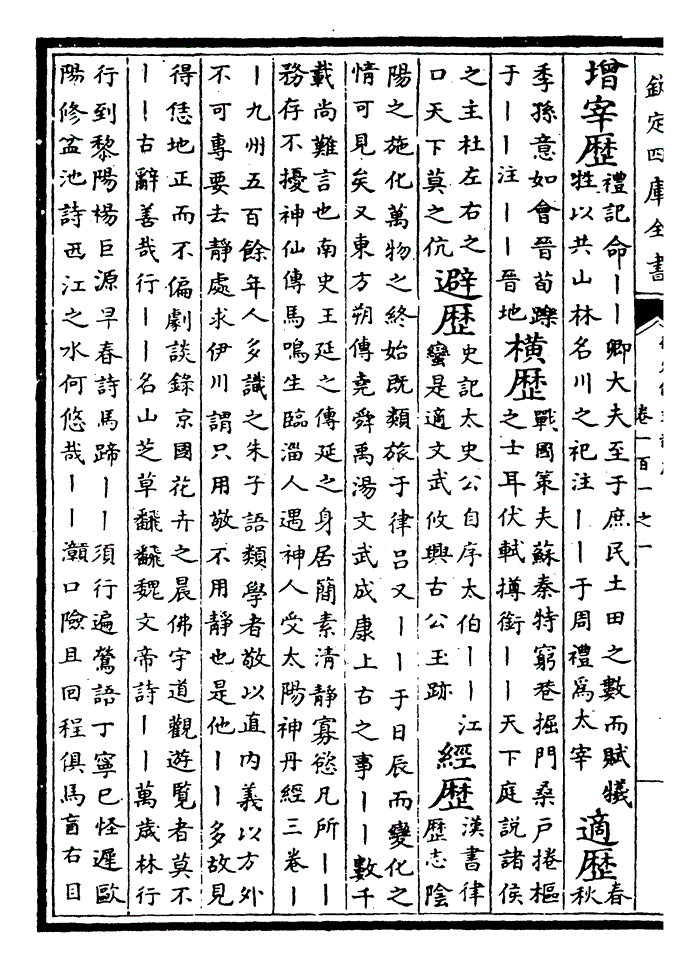 欽定四庫全書
卷一百一之一
增宰歷
禮記命｜｜卿大夫至于庶民土田之數而賦犧
牲以共山林名川之祀注｜｜于周禮爲太宰
適歷
春
秋
季孫意如會晉荀躒
于｜｜注｜｜晉地
橫歷
戰國策夫蘇秦特窮巷掘門桑戶捲樞
之士耳伏軾撙銜｜｜天下庭説諸侯
之主杜左右之
口天下莫之伉
避歷
史記太史公自序太伯｜｜江
蠻是適文武攸興古公王跡
經歷
漢書律
歷志陰
陽之施化萬物之終始旣類旅于律呂又｜｜于日辰而變化之
情可見矣又東方朔傳堯舜禹湯文武成康上古之事｜｜數千
載尚難言也南史王延之傳延之身居簡素清靜寡慾凡所｜｜
務存不擾神仙傳馬鳴生臨淄人遇神人受太陽神丹經三卷｜
｜九州五百餘年人多識之朱子語類學者敬以直内義以方外
不可專要去靜處求伊川謂只用敬不用靜也是他｜｜多故見
得恁地正而不偏劇談錄京國花卉之晨佛宇道觀遊覽者莫不
｜｜古辭善哉行｜｜名山芝草飜飜魏文帝詩｜｜萬歲林行
行到黎陽楊巨源早春詩馬蹄｜｜須行遍鶯語丁寧已怪遲歐
陽修盆池詩西江之水何悠哉｜｜灨口險且回程俱馬盲右目